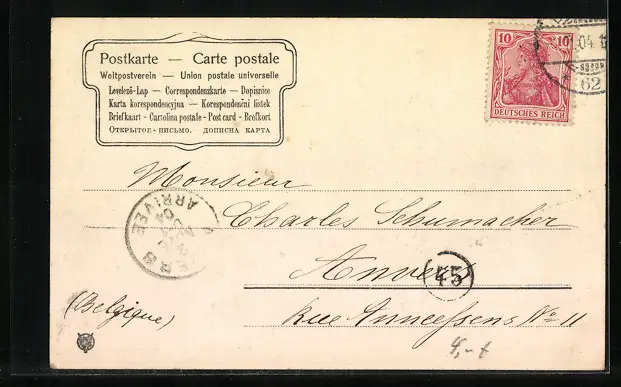 Postkarte — Carte postale
Weltpostverein — Union postale universelle
Levelező-Lap — Correspondenzkarte — Dopisnice
Karta korespondencyjna — Korespondenční lístek
Briefkaart - Cartolina postale - Post card - Brefkort
ОТКРЫТОЕ - ПИСЬМО. ДОПИСНА КАРТА
10 10
DEUTSCHES REICH
04.1
62
Monsieur
ARRIVÉE
04
ERS
Charles Schumacher
Anvers
45
(Belgique)
Rue Anneessens No 11
4,-